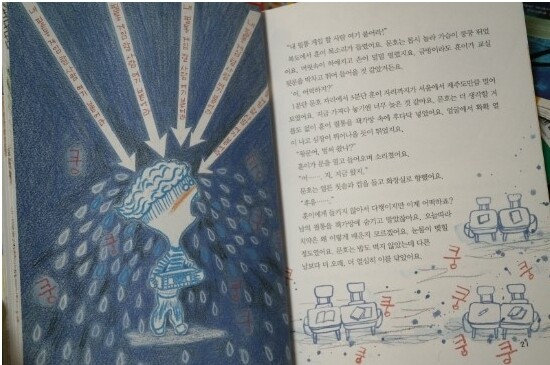 쿵
쿵
쿵
쿵
쿵
쿵
"내 필통 제일 할 사람 여기 붙어라!"
복도에서 훈이 목소리가 들렸어요. 문호는 몹시 놀라 가슴이 쿵쿵 뛰었
어요. 머릿속이 하얘지고 손이 덜덜 떨렸지요. 금방이라도 훈이가 교실
뒷문을 박차고 뛰어 들어올 것 같았거든요.
'어, 어떡하지?'
1분단 문호 자리에서 3분단 훈이 자리까지가 서울에서 제주도만큼 멀어
보였어요. 지금 가져다 놓기엔 너무 늦은 것 같아요. 문호는 더 생각할 겨
를도 없이 훈이 필통을 책가방 속에 후다닥 넣었어요. 얼굴에서 화확 열
이 나고 심장이 튀어나올 듯이 뛰었지요.
"황문어, 벌써 왔냐?"
훈이가 문을 열고 들어오며 소리쳤어요.
"어……. 자, 지금 왔지."
문호는 얼른 칫솔과 컵을 들고 화장실로 향했어요.
"후유……."
훈이에게 들키지 않아서 다행이지만 이제 어떡하죠?
남의 필통을 책가방에 숨기고 말았잖아요. 오늘따라
치약은 왜 이렇게 매운지 모르겠어요. 눈물이 찔끔
정도였어요. 문호는 밥도 먹지 않았는데 다른
날보다 더 오래, 더 열심히 이를 닦았어요.
쿵
쿵
쿵
쿵
쿵
21